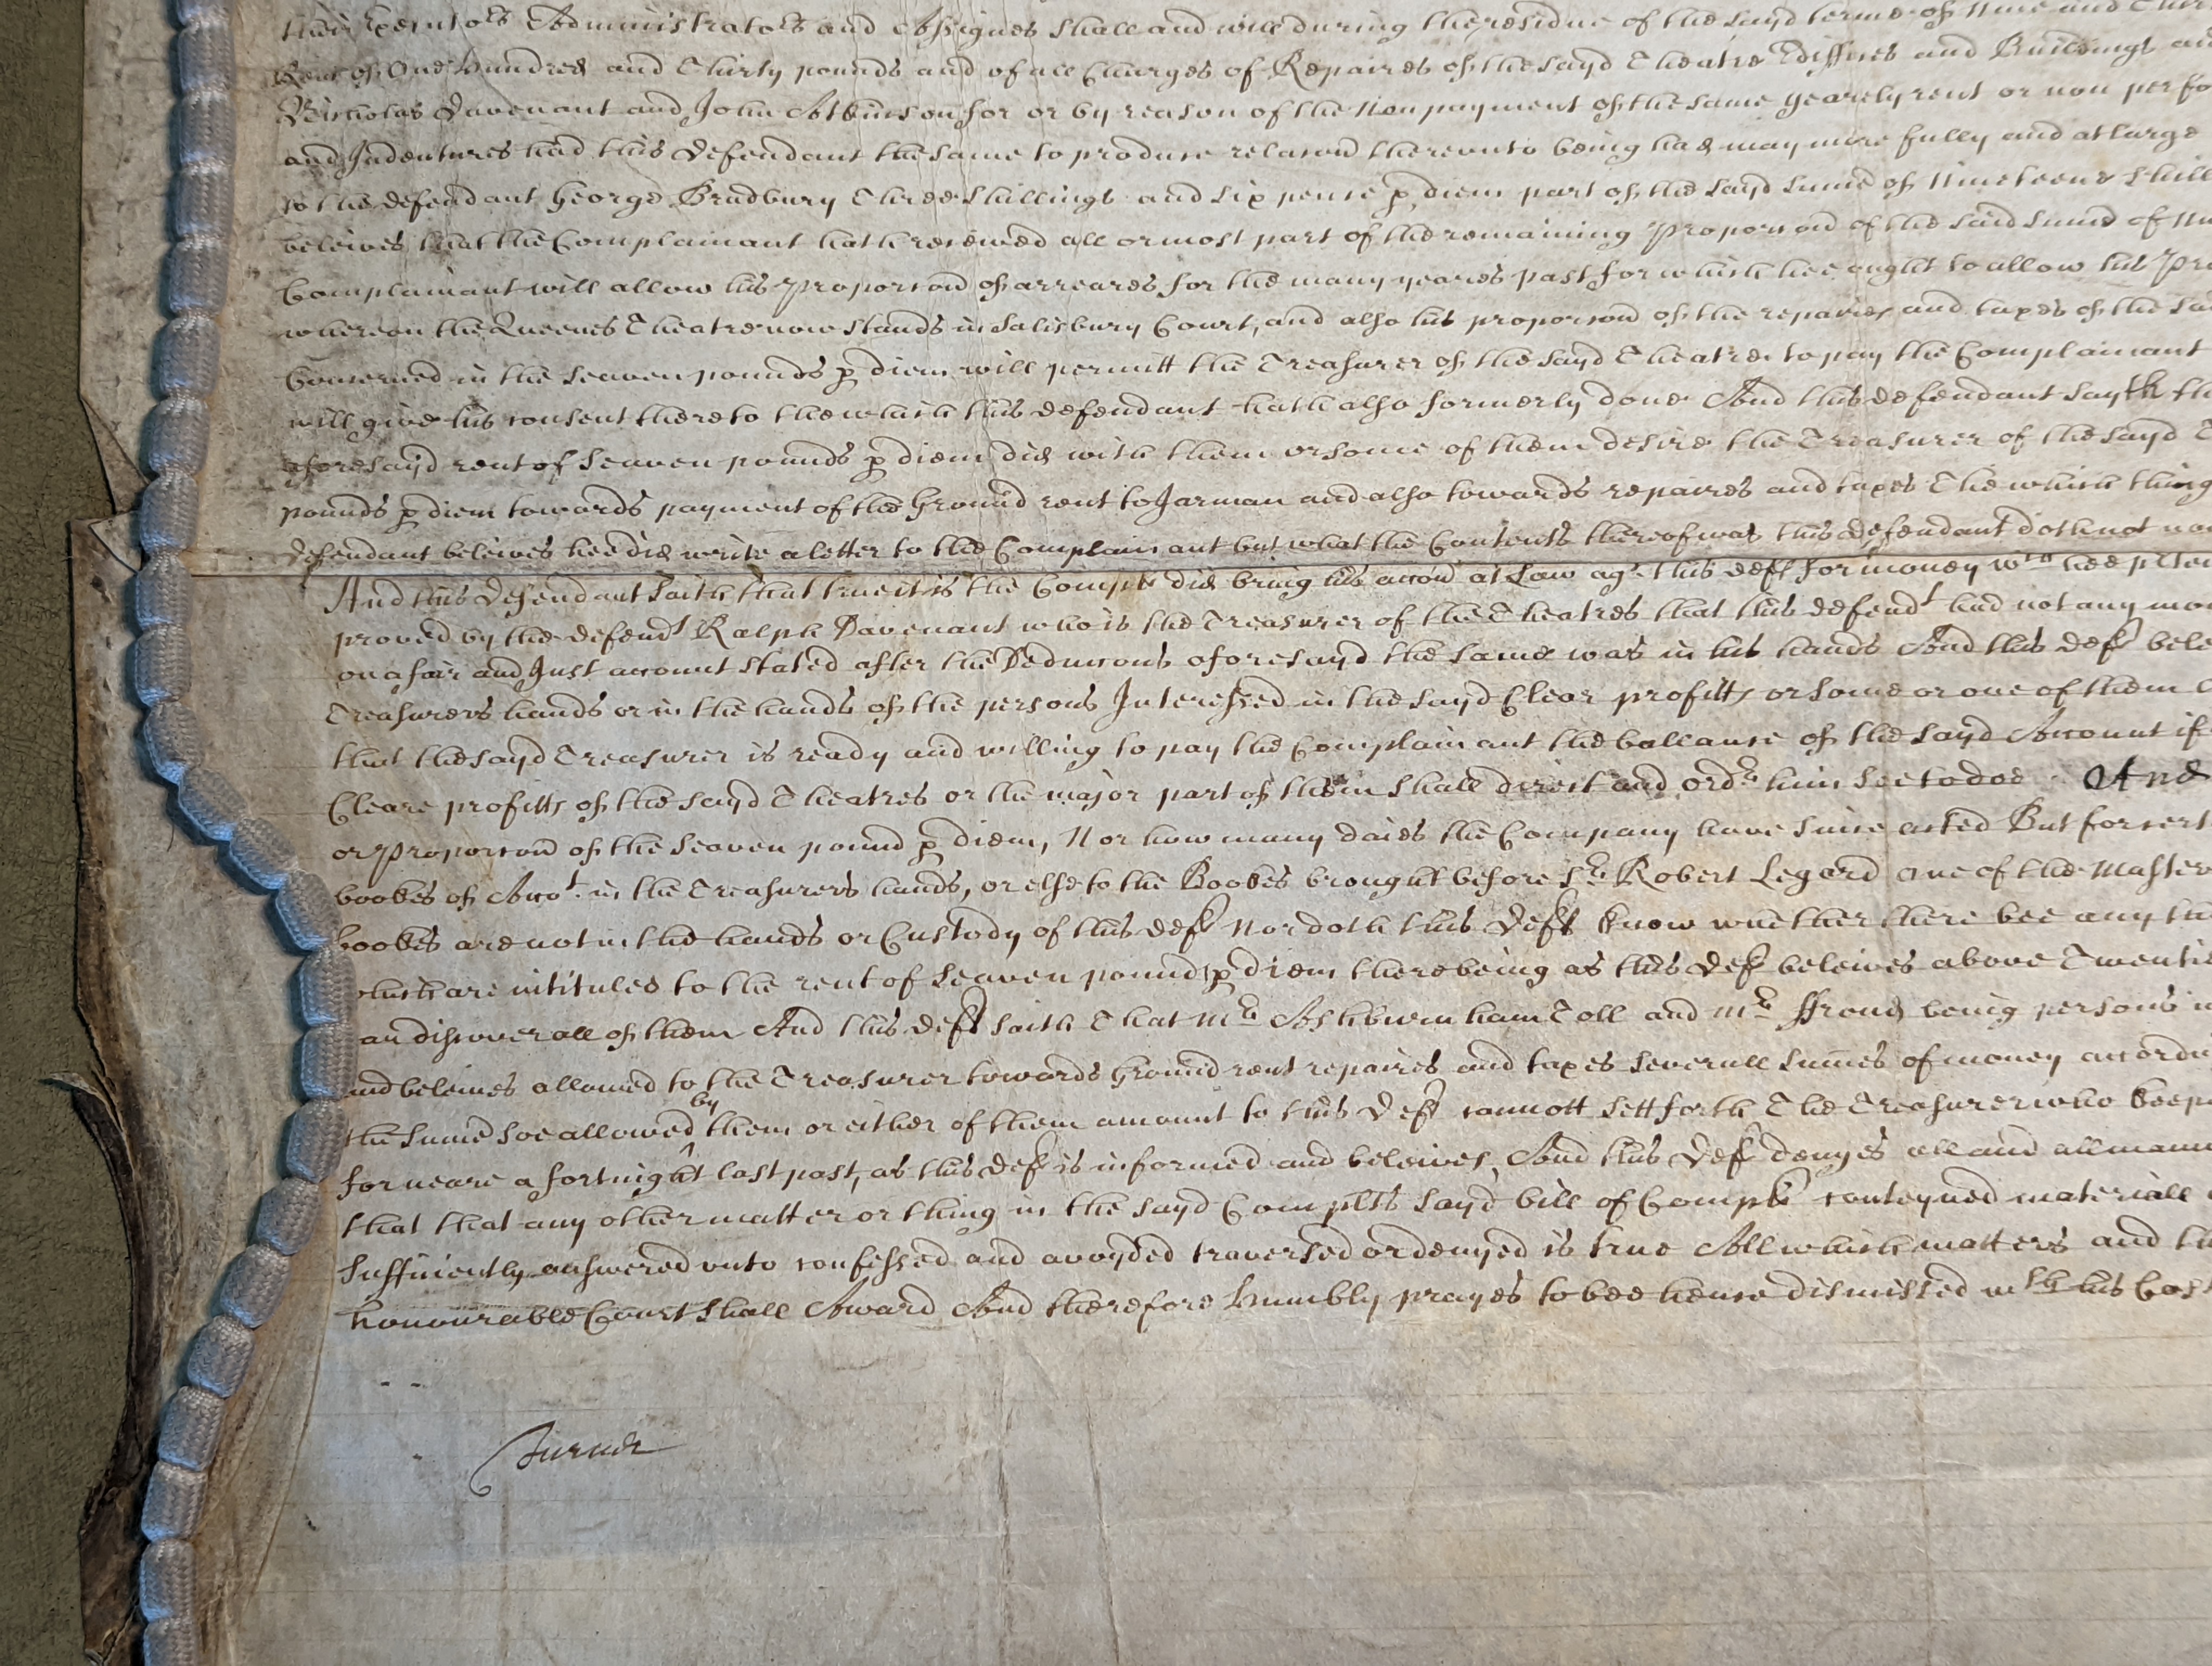 their Executors Administrators and Assignes shall and will during the residue of the sayd terme of Nine and Thir
Rent of One Hundred and Thirty pounds and of all Charges of Repaires of the sayd Theatre Ediffices and Buildings an
Nicholas Davenant and John Atkinson for or by reason of the Non payment of the same yearely rent or non perfo
and Indentures had this Defendant the same to produce relacon thereunto being had may more fully and at large
to the defendant George Bradbury Three Shillings and six pence p diem part of the sayd sume of Nineteene shill
beleives that the Complainant hath received all or most part of the remaining Proporcon of the said sume of
Complainant will allow his Proporcon of arreares for the many yeares past for which hee ought to allow his Pro
whereon the Queenes Theatre now stands in Salisbury Court, and also his proporcon of the repaires and taxes of the sa
Concerned in the seaven pounds p diem will permitt the Treasurer of the sayd Theatre to pay the Complainant
will give his consent thereto the which this defendant hath also formerly done And this defendant sayth th
aforesayd rent of seaven pounds p diem did with them or some of them desire the Treasurer of the sayd T
pounds p diem towards payment of the Ground rent to Jarman and also towards repaires and taxes The which thing
defendant beleives hee did write a letter to the Complainant but what the Contents thereof was this defendant doth not
And this Defendant saith that true it is the Complt did bring his accon at Law agt this deft for money wch hee
proved by the defendt Ralph Davenant who is the Treasurer of the Theatres that this defendt had not any mo
on a fair and Just account stated after the Deduccons aforesayd the same was in his hands And this deft bele
Treasurers hands or in the hands of the persons Interessed in the sayd Clear profitts or some or one of them
that the sayd Treasurer is ready and willing to pay the Complainant the ballance of the sayd Account if
Cleare profitts of the sayd Theatres or the major part of them shall direct and ordr him soe to doe And
or Proporcon of the seaven pound p diem, Nor how many daies the Company have since acted But for cert
bookes of Accot in the Treasurers hands, or else to the Bookes brought before Sr Robert Legard one of the Master
bookes are not in the hands or Custody of this deft Nor doth this Deft know whether there bee any
which are intituled to the rent of seaven pound p diem there being as this Deft beleives above Twentie
can discover all of them And this deft saith That Mr Ashburnham Toll and Mr ffroud being persons
and beleives allowed to the Treasurer towards Ground rent repaires and taxes severall sumes of money accordi
the sume soe allowed by them or either of them amount to this Deft cannott sett forth The Treasurer who keep
for neare a fortnight last past, as this deft is informed and beleives, And this Deft denyes all and all mann
that that any other matter or thing in the sayd Complts sayd bill of Complt conteyned materiall
sufficiently answered unto confessed and avoyded traversed or denyed is true All which matters and th
honourable Court shall Award And therefore humbly prayes to bee hence dismissed with his Cos
Turner